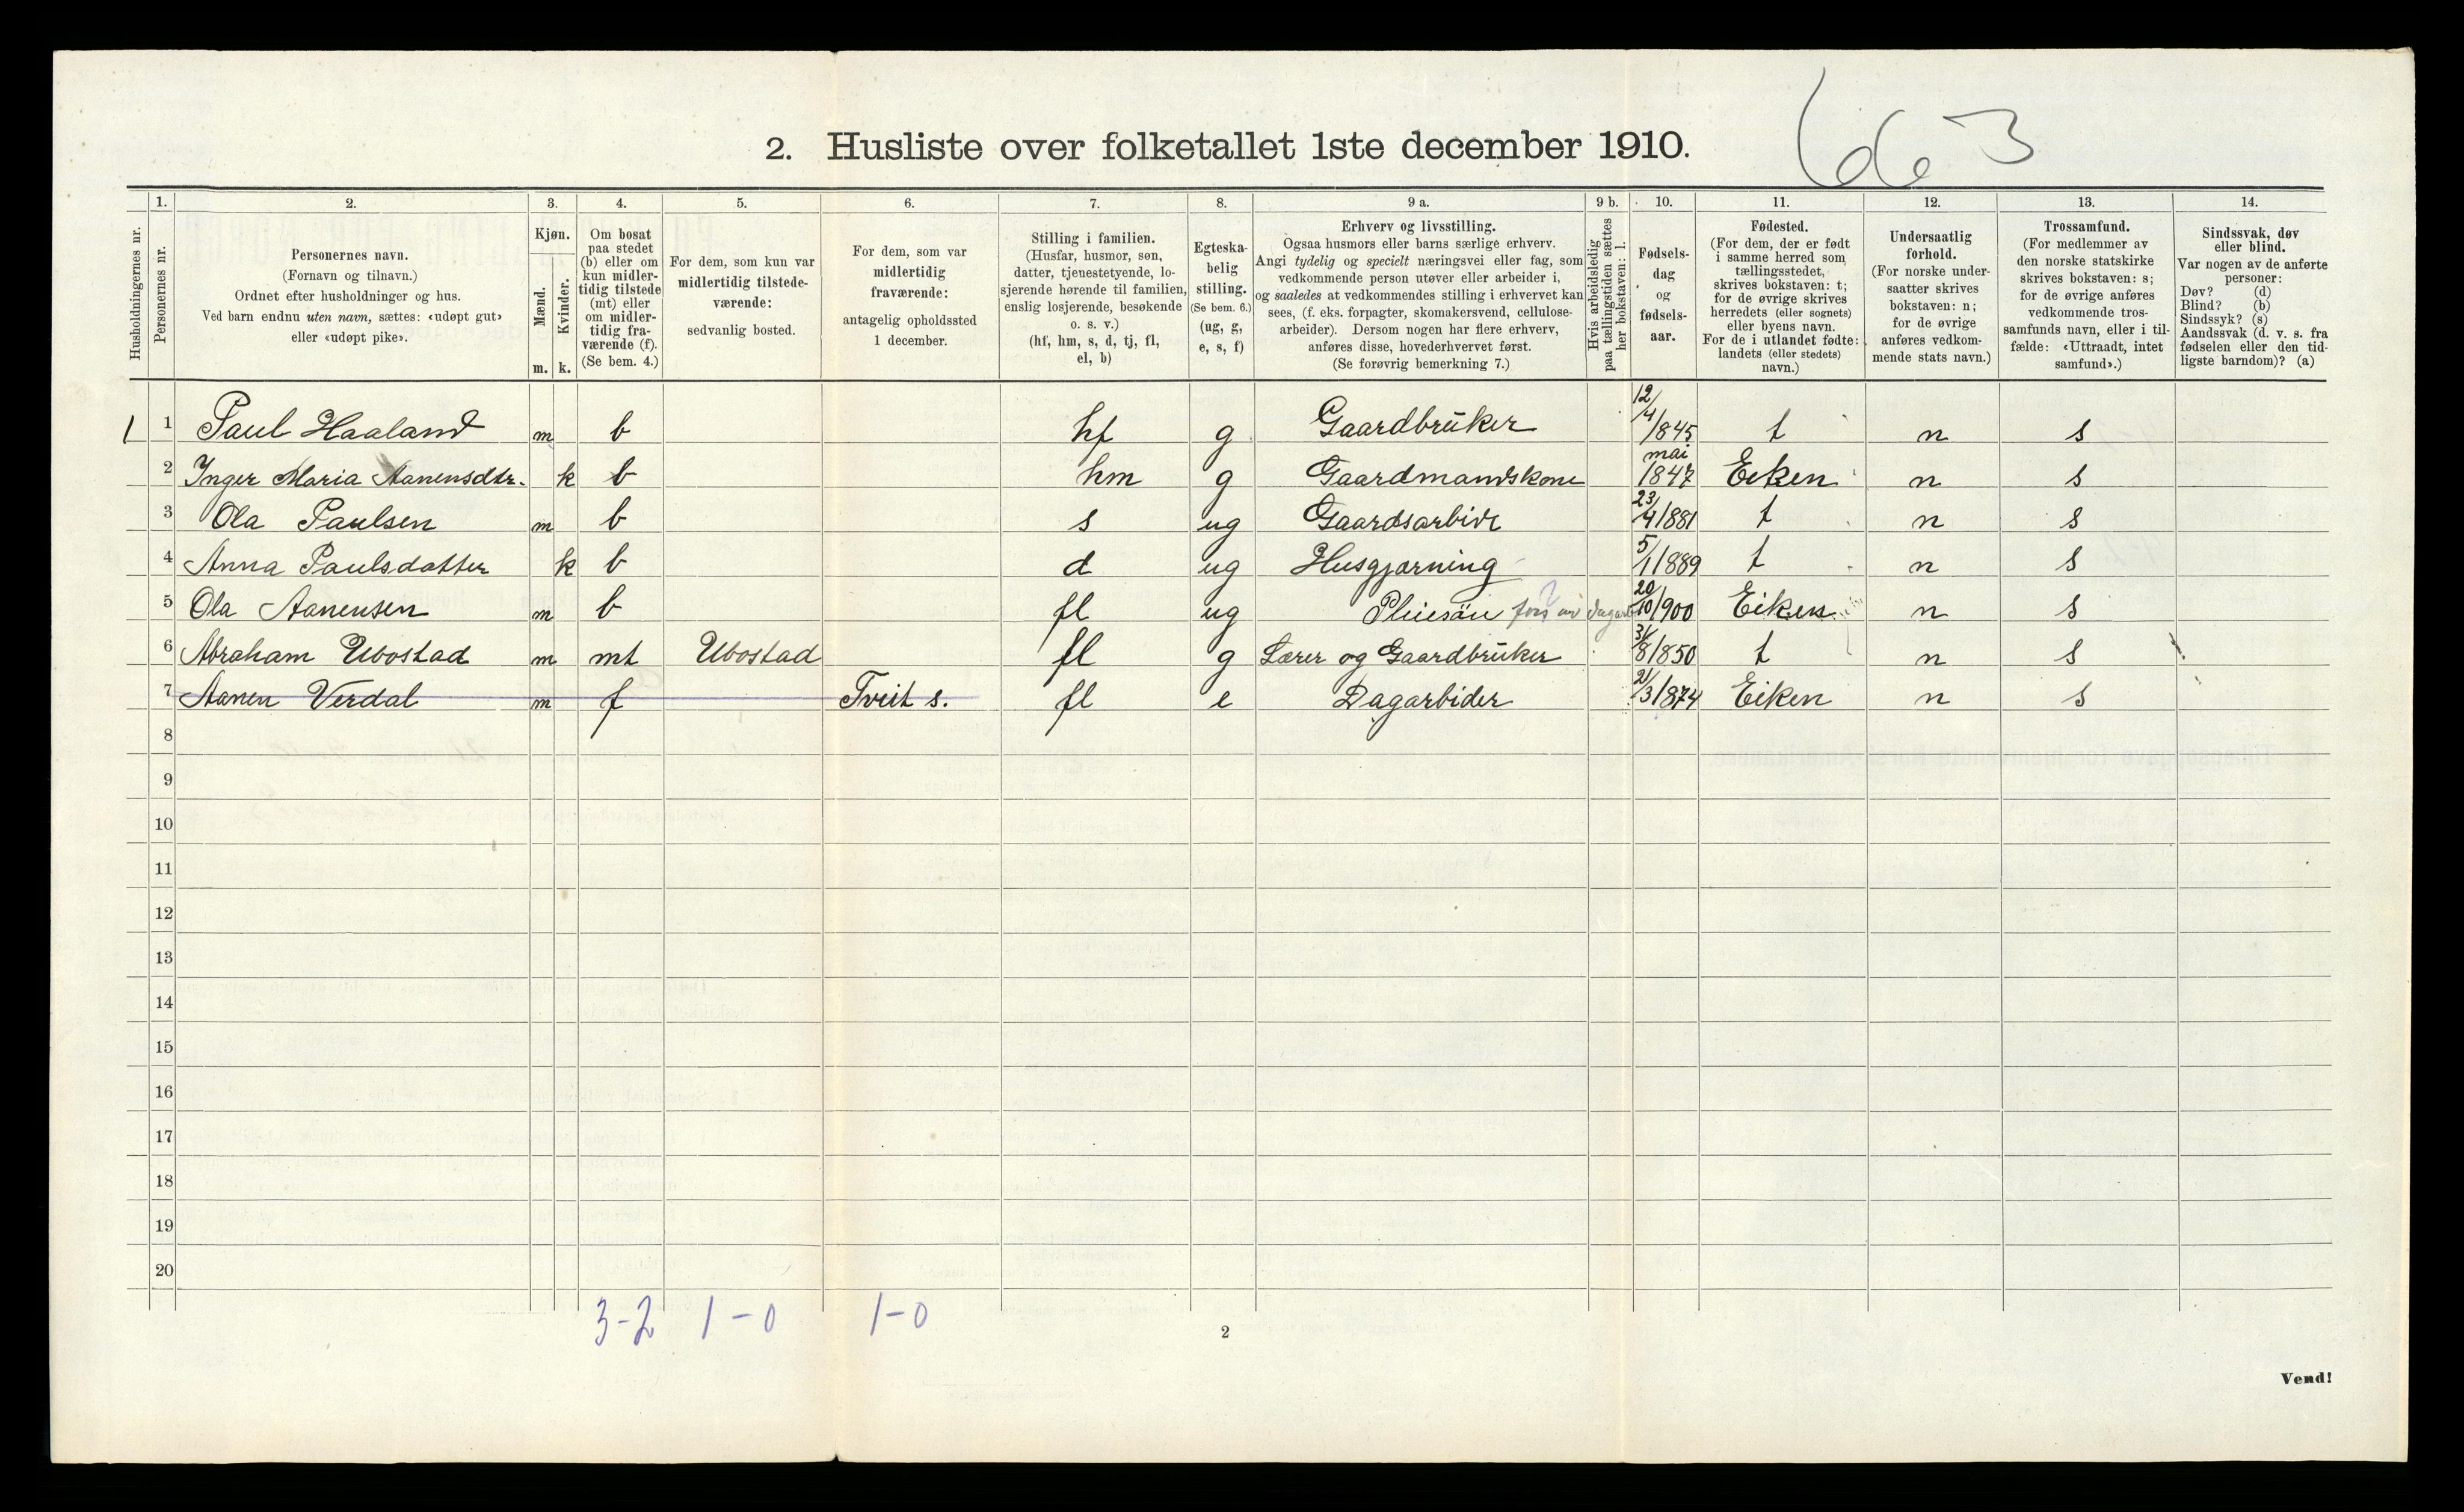 663
2. Husliste over folketallet 1ste december 1910.
Husholdningernes nr.
1.
Personernes nr.
2.
Personernes navn.
(Fornavn og tilnavn.)
Ordnet efter husholdninger og hus.
Ved barn endnu uten navn, sættes: «udøpt gut»
eller «udøpt pike».
3.
Kjøn.
Mænd.
Kvinder.
m. k.
4.
Om bosat
paa stedet
(b) eller om
kun midler-
tidig tilstede
(mt) eller
om midler-
tidig fra-
værende (f).
(Se bem. 4.)
5.
For dem, som kun var
midlertidig tilstede-
værende:
sedvanlig bosted.
6.
For dem, som var
midlertidig
fraværende:
antagelig opholdssted
1 december.
7.
Stilling i familien.
(Husfar, husmor, søn,
datter, tjenestetyende, lo-
sjerende hørende til familien,
enslig losjerende, besøkende
o. s. v.)
(hf, hm, s, d, tj, fl,
el, b)
8.
Egteska-
belig
stilling.
(Se bem. 6.)
(ug, g,
e, s, f)
9 a.
Erhverv og livsstilling.
Ogsaa husmors eller barns særlige erhverv.
Angi tydelig og specielt næringsvei eller fag, som
vedkommende person utøver eller arbeider i,
og saaledes at vedkommendes stilling i erhvervet kan
sees, (f. eks. forpagter, skomakersvend, cellulose-
arbeider). Dersom nogen har flere erhverv,
anføres disse, hovederhvervet først.
(Se forøvrig bemerkning 7.)
9 b.
Hvis arbeidsledig
paa tællingstiden sættes
her bokstaven: l.
10.
Fødsels-
dag
og
fødsels-
aar.
11.
Fødested.
(For dem, der er født
i samme herred som
tællingsstedet,
skrives bokstaven: t;
for de øvrige skrives
herredets (eller sognets)
eller byens navn.
For de i utlandet fødte:
landets (eller stedets)
navn.)
12.
Undersaatlig
forhold.
(For norske under-
saatter skrives
bokstaven: n;
for de øvrige
anføres vedkom-
mende stats navn.)
13.
Trossamfund.
(For medlemmer av
den norske statskirke
skrives bokstaven: s;
for de øvrige anføres
vedkommende tros-
samfunds navn, eller i til-
fælde: «Uttraadt, intet
samfund».)
14.
Sindssvak, døv
eller blind.
Var nogen av de anførte
personer:
Døv? (d)
Blind? (b)
Sindssyk? (s)
Aandssvak (d. v. s. fra
fødselen eller den tid-
ligste barndom)? (a)
1 1 Paul Haaland m b hf g Gaardbruker 12/4/1845 t n s
2 Inger Maria Aanensdtr. k b hm g Gaardmandskone mai 1847 Eiken n s
3 Ola Paulsen m b s ug Gaardsarbide 23/4/1881 t n s
4 Anna Paulsdatter k b d ug Husgjærning 5/1/1889 t n s
5 Ola Aanensen m b fl ug Pleiesøn 20/10/900 Eiken n s
6 Abraham Ubostad m mt Ubostad fl g Lærer og Gaardbruker 31/8/850 t n s
7 Aanen Verdal m f Tveit s. fl e Dagarbider 21/3/1874 Eiken n s
8
9
10
11
12
13
14
15
16
17
18
19
20
3-2 1-0 1-0
2
Vend!